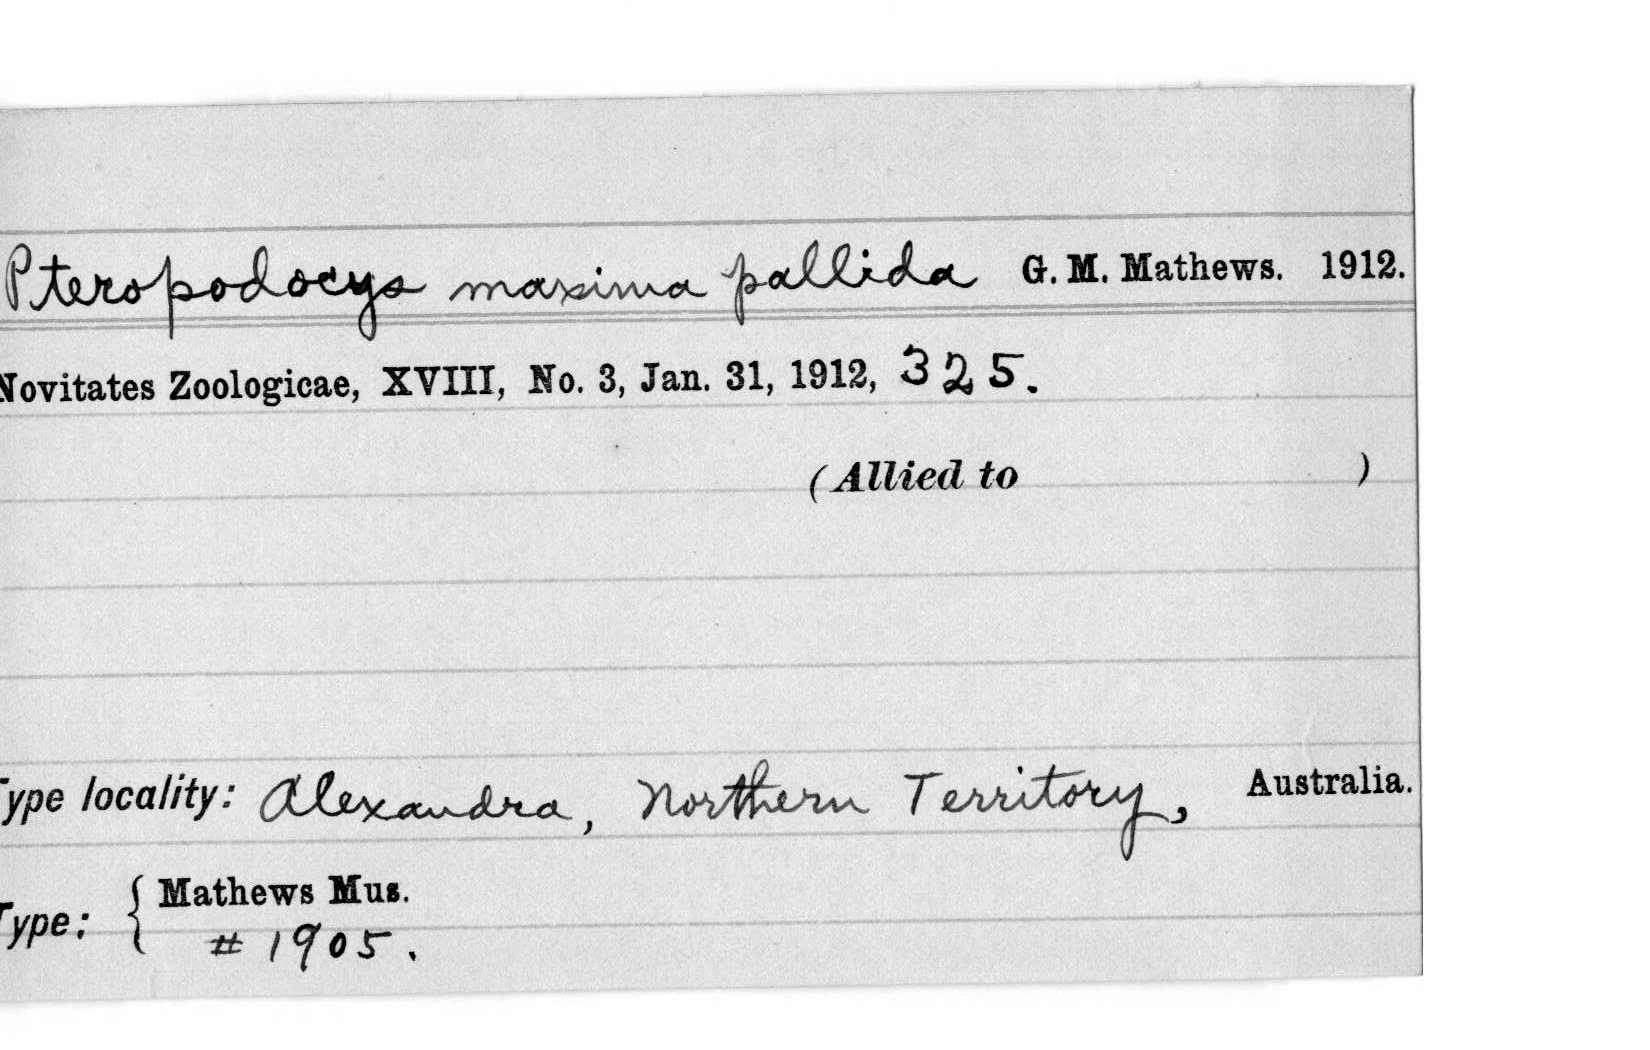 Pteropodocys maxima pallida G. M. Mathews. 1912.
Novitates Zoologicae, XVIII, No. 3, Jan. 31, 1912, 325.
(Allied to )
Type locality: Alexandra, Northern Territory, Australia.
Type: { Mathews Mus.
# 1905.